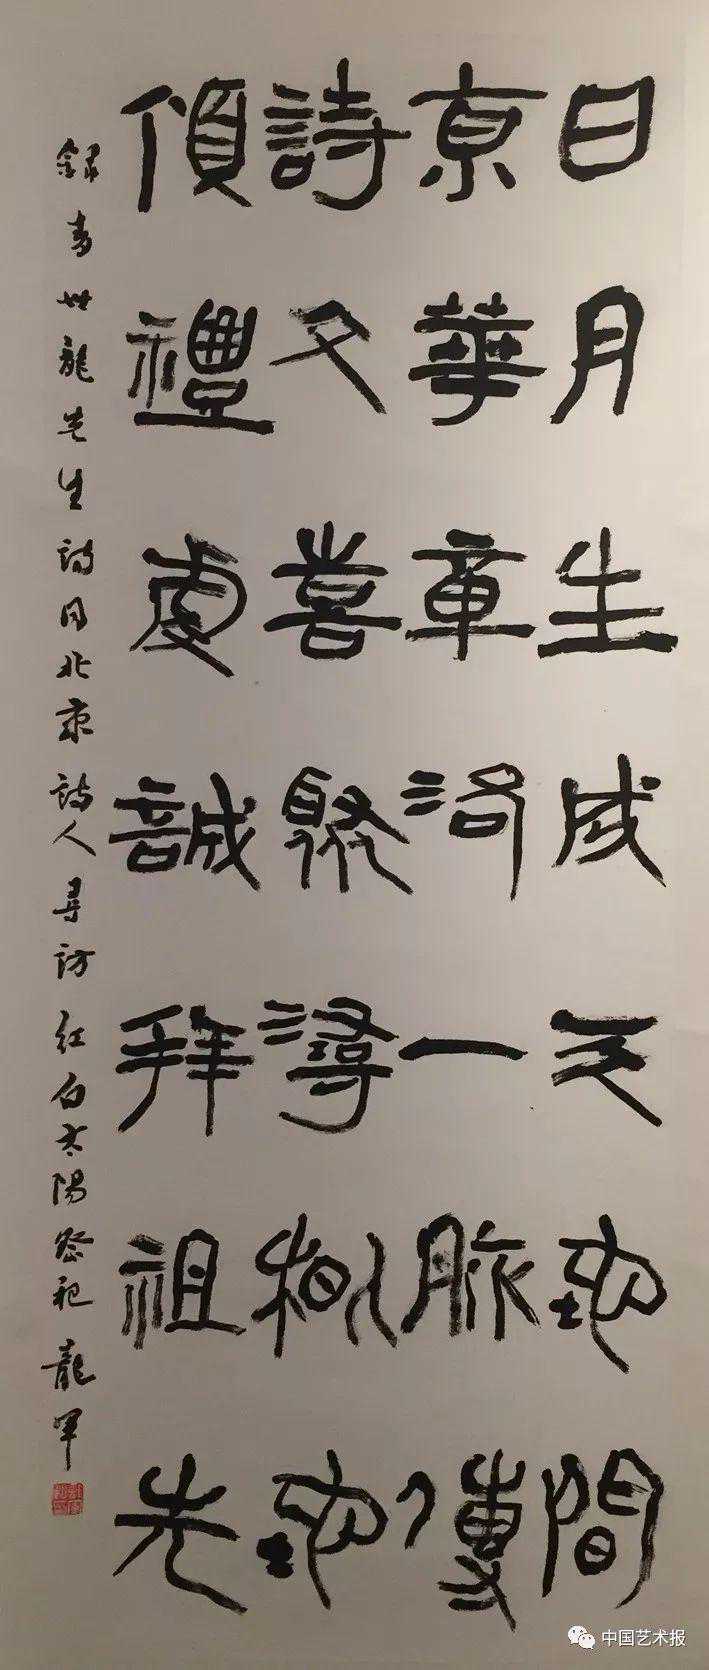 日月生成天地間
京華章洛一脈傳
詩又喜聚潯地
傾禮虔誠拜祖先
錄考世龍先生詩同北京詩人尋訪紅白太陽祭祀 龍軍
中国艺术报